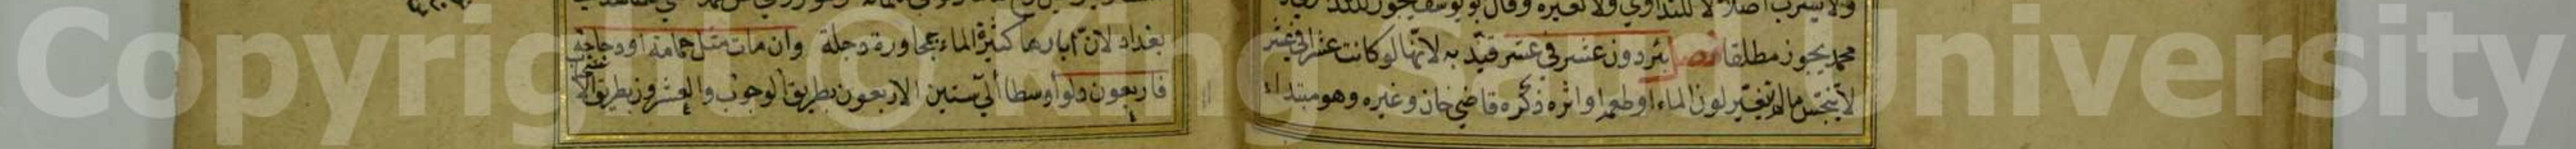 ولا يشرب اصلا لا للتداوي ولا لغيره وقال ابو يوسف يجوز للتداوي
محمد يجوز مطلقا فصل بئر دون عشر في عشر قيد به لانها لو كانت عشرا في عشر
لا ينجس ما لم يتغير لون الماء او طعمه او اثره ذكره قاضي خان وغيره وهو مبتداء
بغداد لان آبارها كثيرة الماء بمجاورة دجلة وان مات مثل حمامة او دجاجة
فاربعون دلوا وسطا الى ستين الاربعون بطريق الوجوب والعشرون بطريق
Copyright © King Saud University